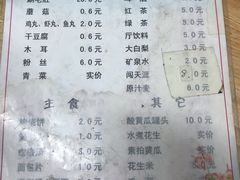 蘑菇 0.6元
鸡丸、虾丸、鱼丸 2.0元
干豆腐 0.6元
木耳 0.6元
粉丝 6.0元
青菜 实价
红茶 3.0元
绿茶 3.0元
厅饮料 5.0元
大白梨 3.0元
矿泉水 2.0元
闯天涯 8.0元
原汁麦 6.0元
主食
2.0元
1.0元
2.0元
面包片 1.0元
其它
酸黄瓜罐头 10.0元
水煮花生 实价
素拍黄瓜 实价
花生米 实价